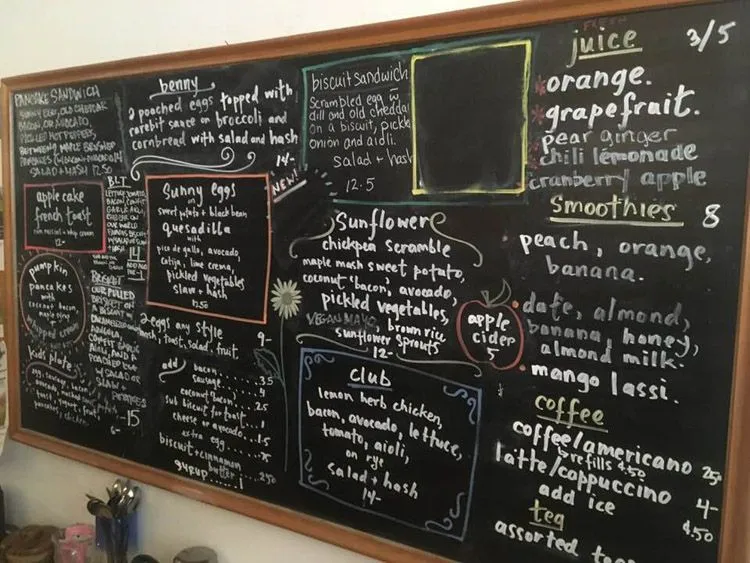 PANCAKE SANDWICH
SUNNY EGG, OLD CHEDDAR
BACON, OR AVOCADO,
PICKLED HOT PEPPERS,
BETWEEN MAPLE
PANCAKES
SALAD + HASH 12.50
apple cake
french toast
12-
pumpkin
pancakes
with
coconut bacon,
maple
whipped cream
kids plate
BLT
LETTUCE, TOMATO,
GARLIC AIOLI,
14
BRISKET
OUR PULLED
BRISKET ON
A BISCUIT W
AND A
POACHED EGG
W SALAD OR
SLAW
15
benny
2 poached eggs topped with
rarebit sauce on broccoli and
cornbread with salad and hash
14-
Sunny eggs
on
sweet potato + black bean
quesadilla
with
pico de gallo, avocado,
cotija, lime crema,
pickled vegetables
slaw + hash
12.50
2 eggs any style 9-
hash, toast, salad, fruit
add
bacon........3.5
sausage.....4
coconut bacon,...2.5
sub biscuit for toast..1
cheese or avocado...1.5
extra egg
biscuit + cinnamon
butter...2.50
syrup......1
biscuit sandwich
Scrambled egg w
dill and old cheddar
on a biscuit, pickled
onion and aioli.
salad + hash
12.5
NEW!
Sunflower
chickpea scramble
maple mash sweet potato,
coconut "bacon", avocado,
pickled vegetables,
VEGAN MAYO, brown rice
sunflower sprouts
12-
club
lemon herb chicken,
bacon, avocado, lettuce,
tomato, aioli,
on rye
salad + hash
14-
apple
cider
5
FRESH
juice 3/5
orange.
grapefruit.
pear ginger
chili lemonade
cranberry apple
Smoothies 8
peach, orange,
banana.
date, almond,
banana, honey,
almond milk.
mango lassi.
coffee
coffee/americano 2.50
refills $.50
latte/cappuccino 4-
add ice $.50
tea
assorted teas